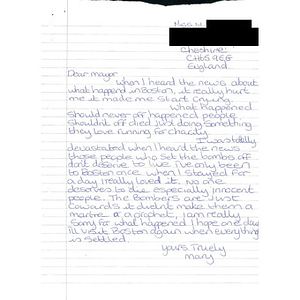 Miss N
Cheshire
CH65 9EG
England
Dear mayor
When I heard the news about
what happend in Boston, it really hurt
me it made me start crying.
What happened
Should never off happened people
Shouldn't off died Just doing something
they love running for charity
I was totally
devastated when I heard the news
those people who set the bombs off
dont deserve to live I've only been
to Boston once when I stayed for
a day I really loved it. No one
deserves to die especially innocent
people. The Bombers are Just
Cowards it didn't make them a
martre or a prophet, I am really
Sorry for what happened I hope one day
ill visit Boston again when everything
is settled.
yours Truely
Mary